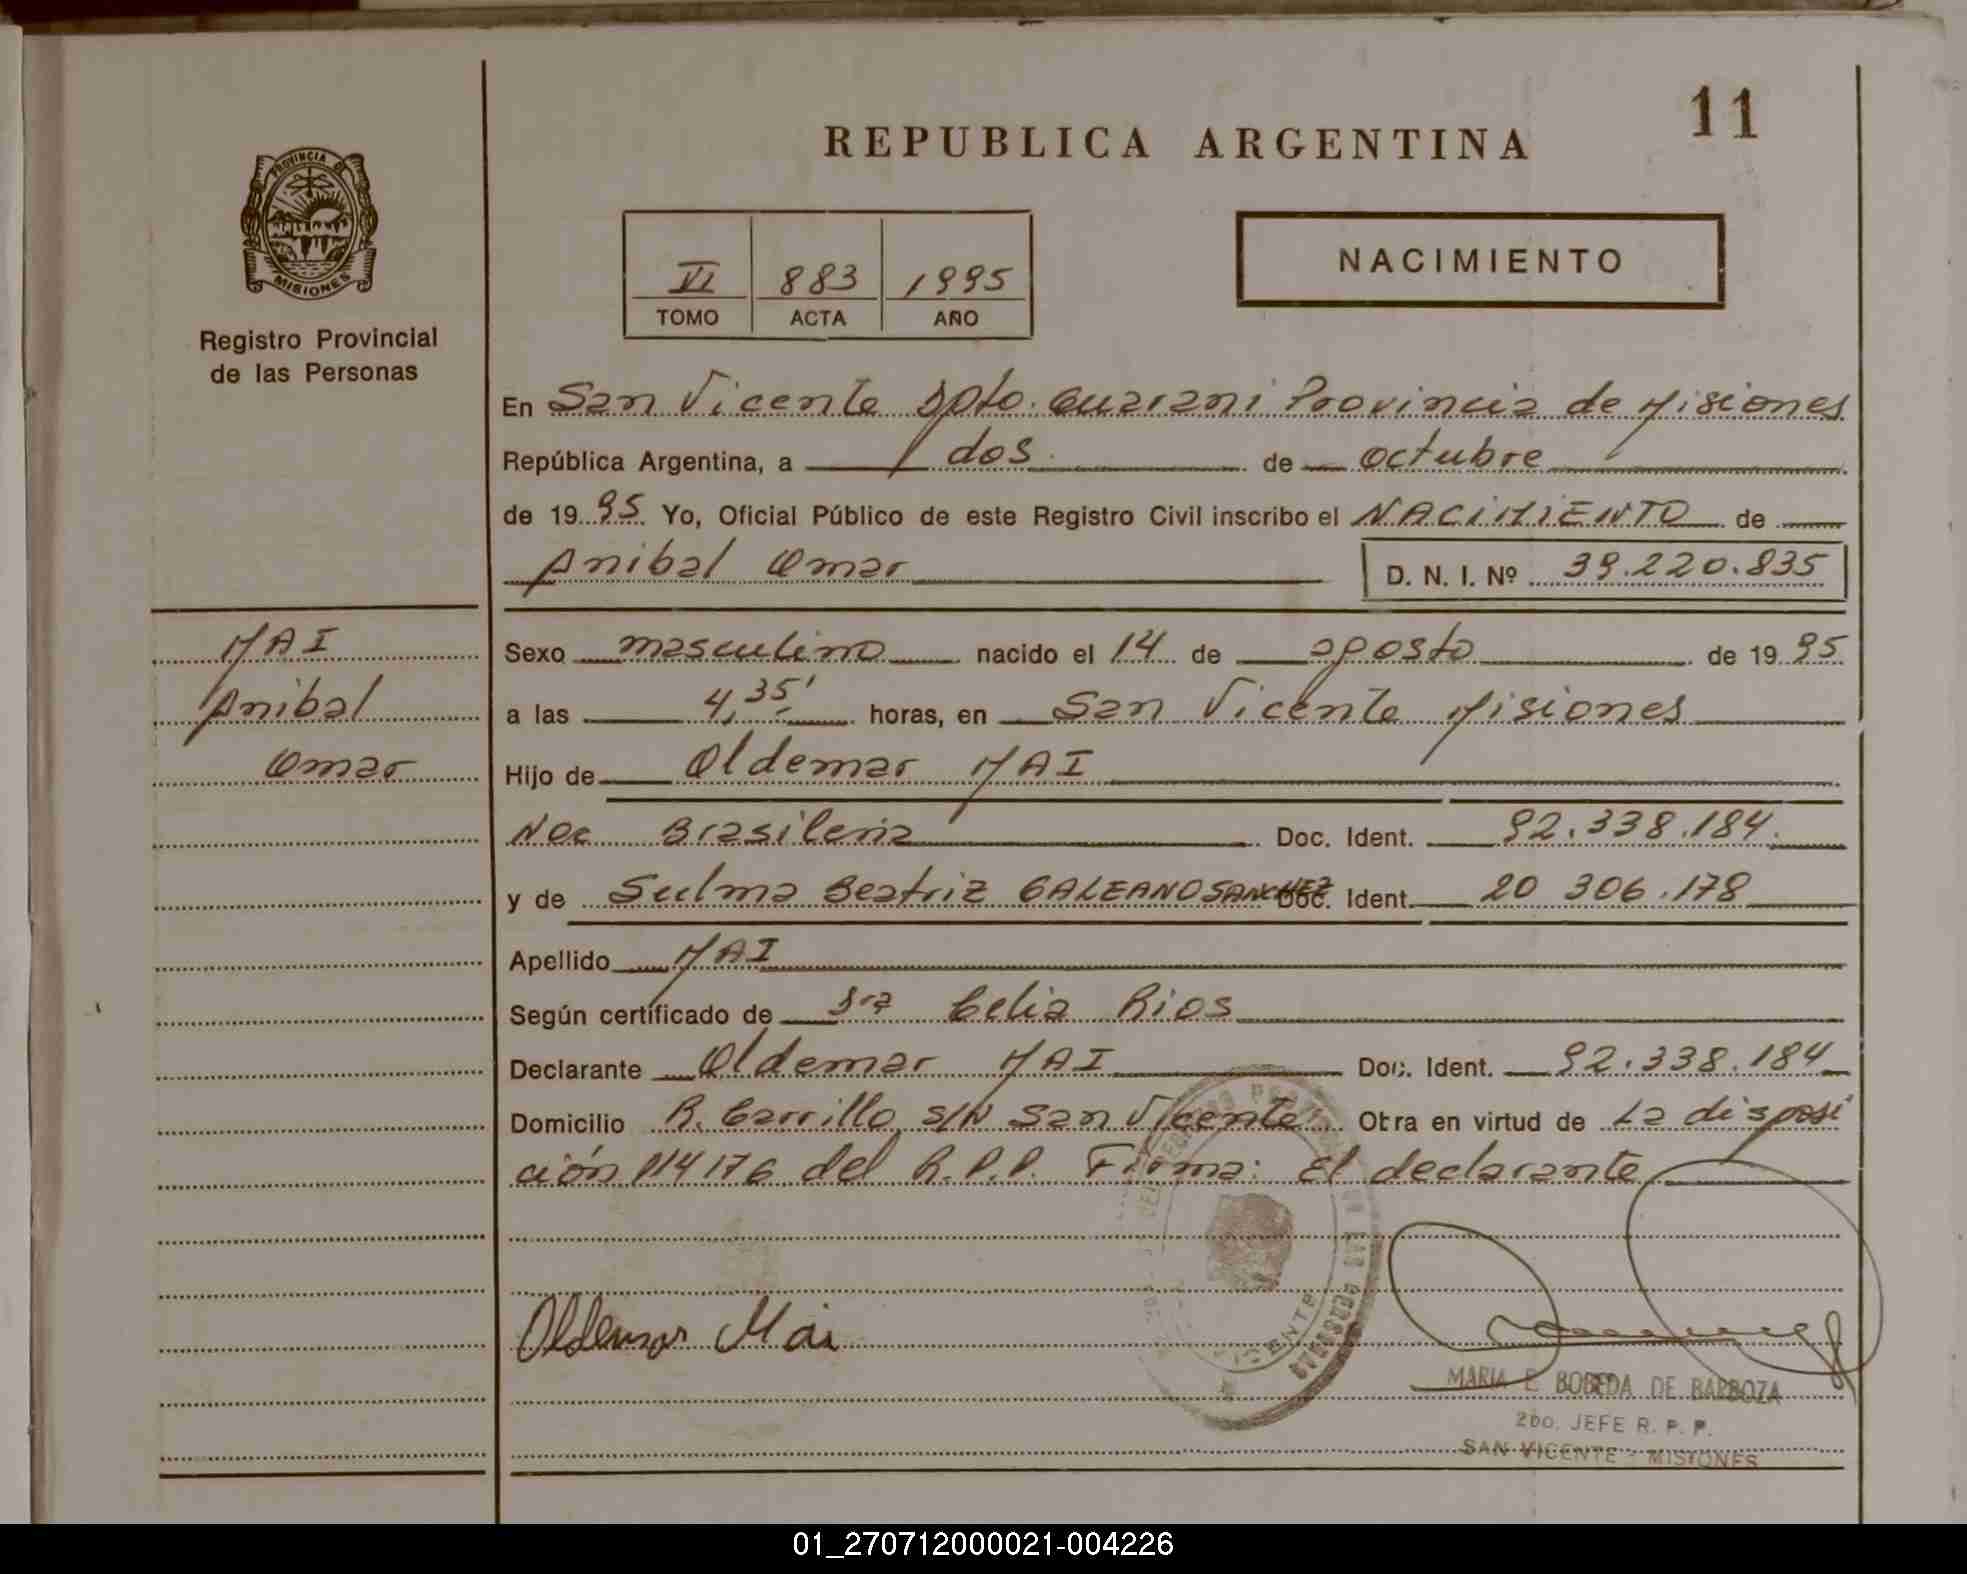 11
REPUBLICA ARGENTINA
PROVINCIA DE
MISIONES
Registro Provincial
de las Personas
VI 883 1995
TOMO ACTA AÑO
NACIMIENTO
En San Vicente Dpto. Guarani Provincia de Misiones
República Argentina, a dos de octubre
de 1995 Yo, Oficial Público de este Registro Civil inscribo el NACIMIENTO de
Anibal Omar D. N. I. Nº 39.220.835
MAI
Anibal
Omar
Sexo masculino nacido el 14 de agosto de 1995
a las 4,35' horas, en San Vicente Misiones
Hijo de Oldemar MAI
Nac Brasilera Doc. Ident. 92.338.184
y de Sulma Beatriz GALEANO SANCHEZ Doc. Ident. 20 306.178
Apellido MAI
Según certificado de Sra Celia Rios
Declarante Oldemar MAI Doc. Ident. 92.338.184
Domicilio R. Carrillo s/N San Vicente Otra en virtud de La disposi
ción 114176 del R.P.P. Firma: El declarante
Oldemar Mai
MARIA E. BOBEDA DE BARBOZA
2do. JEFE R. P. P.
SAN VICENTE - MISIONES
01_270712000021-004226